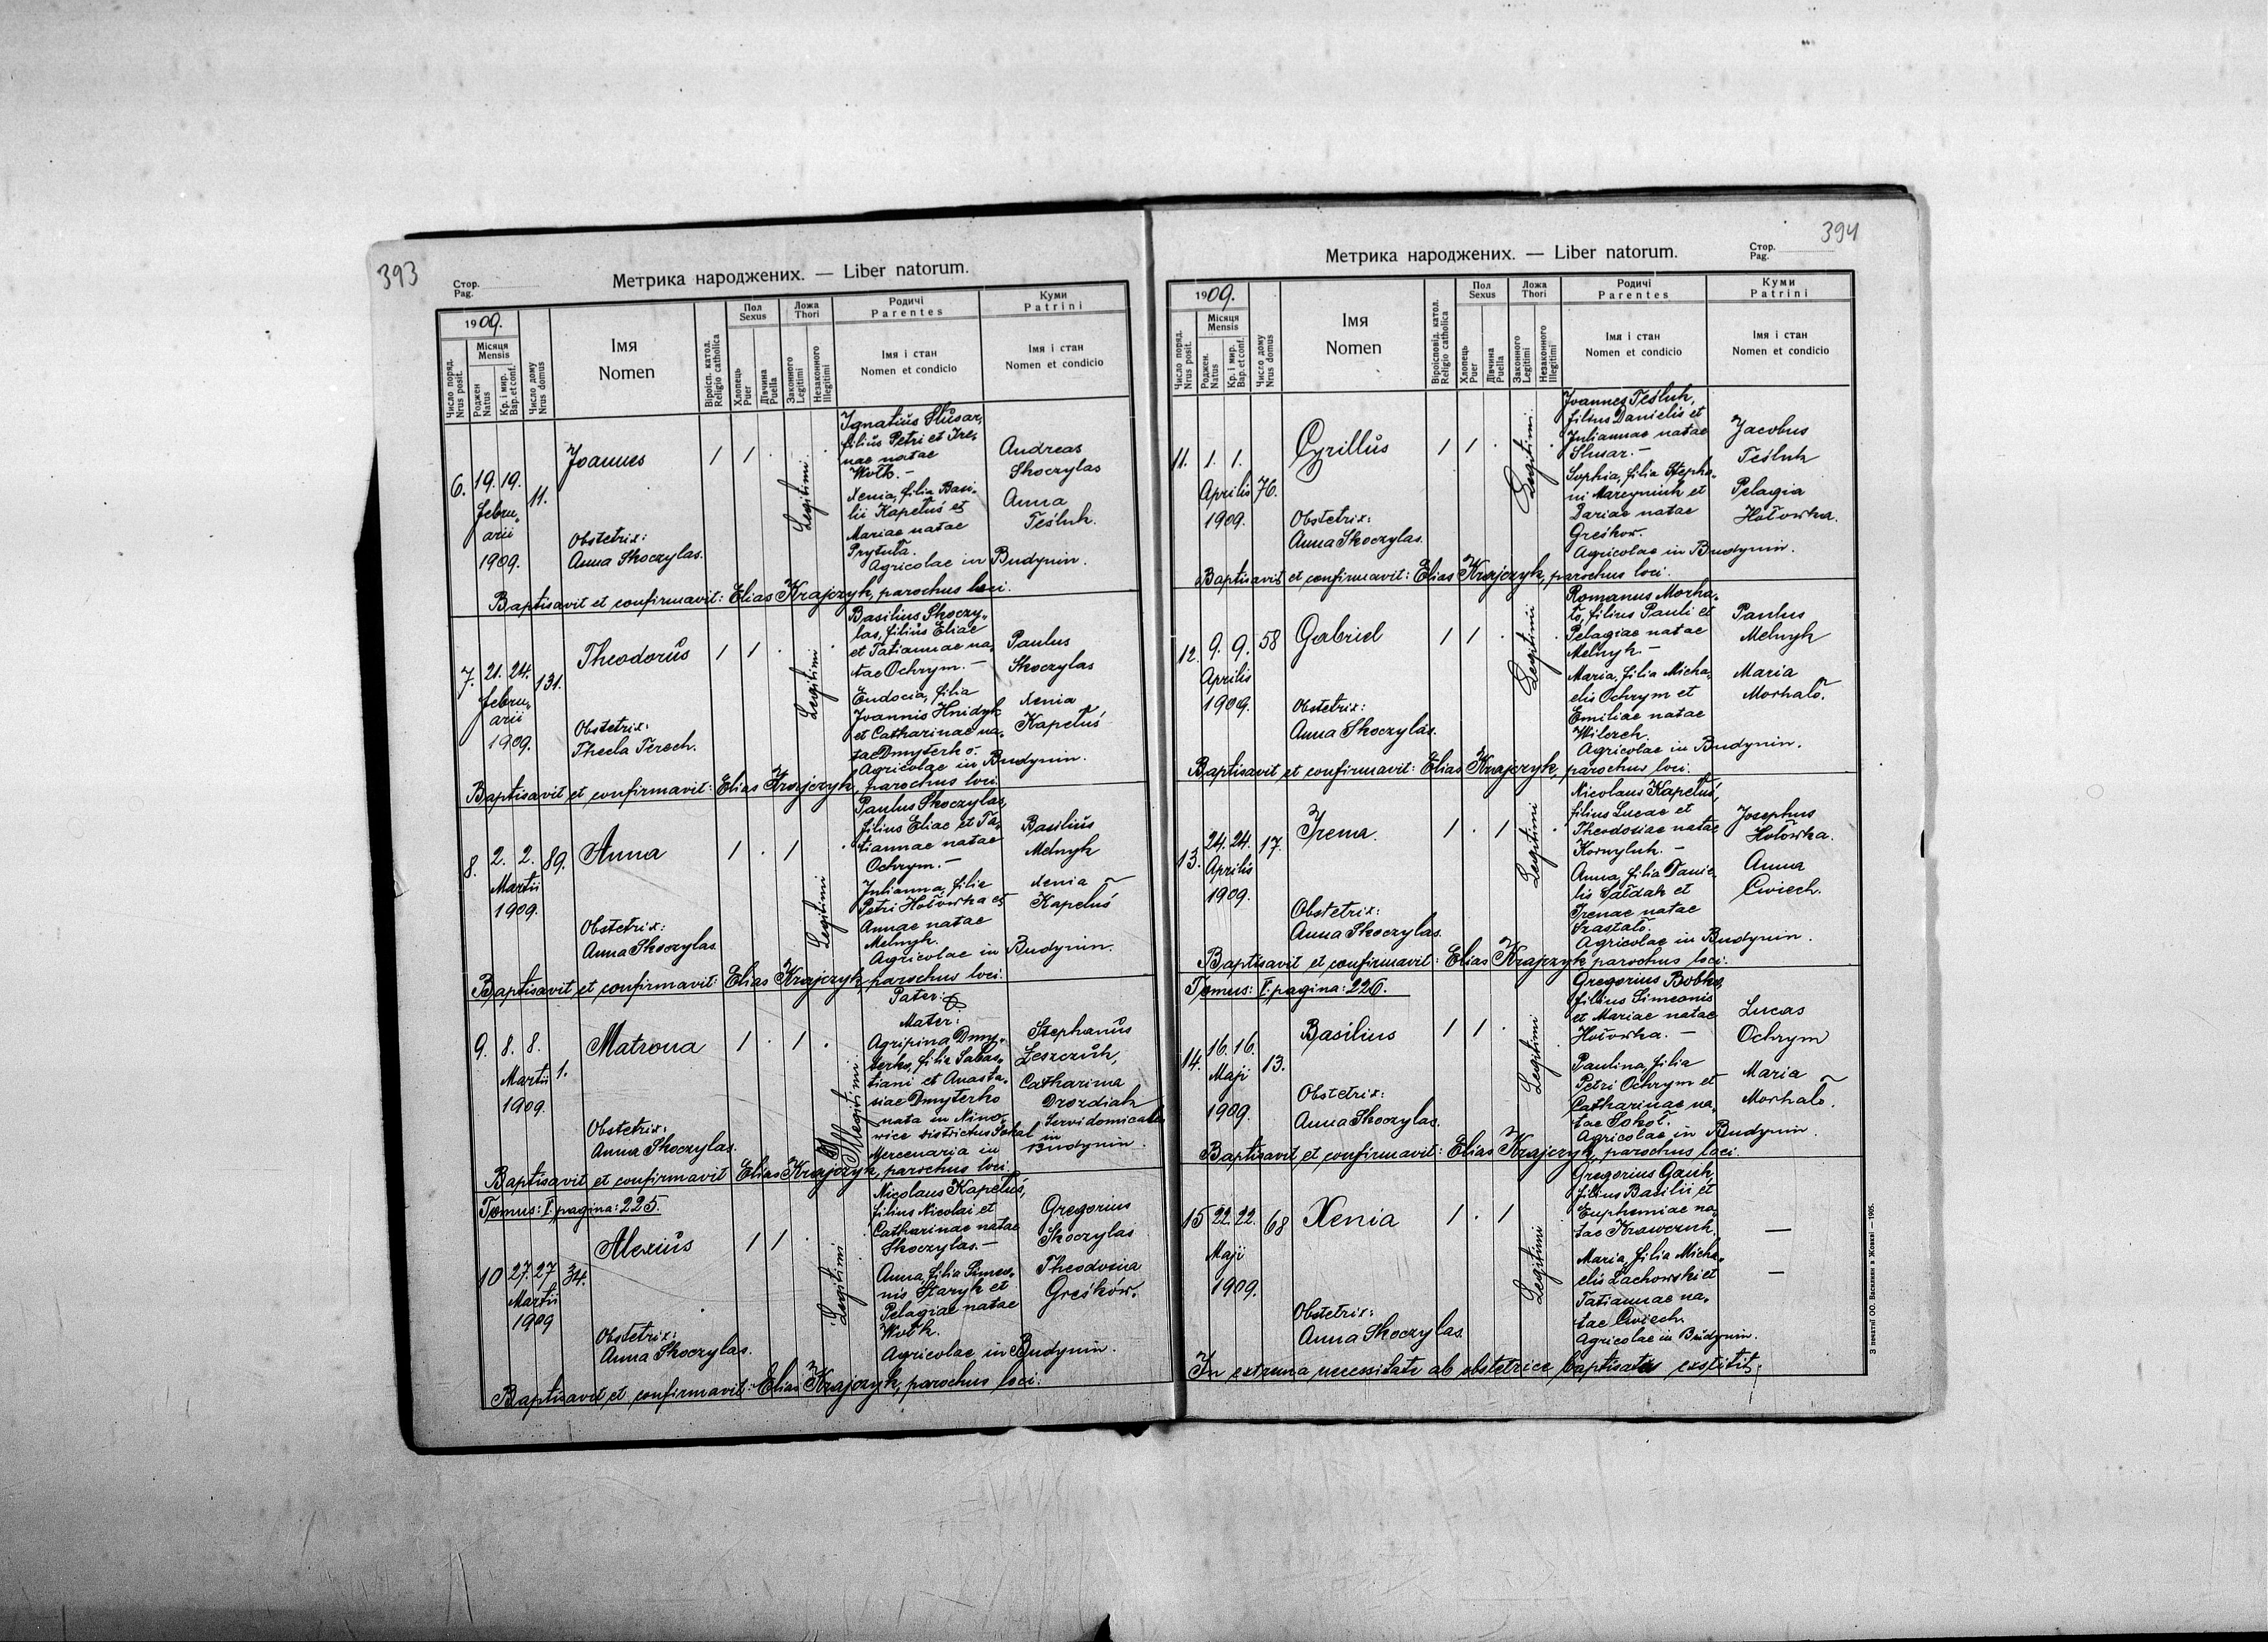 393
Стор.
Pag.
Метрика народжених. — Liber natorum.
1909.
Число поряд.
Nrus posit.
Місяця
Mensis
Роджен
Natus
Кр. і мир.
Bap. et conf.
Число дому
Nrus domus
Імя
Nomen
Віроісп. катол.
Religio catholica
Пол
Sexus
Хлопець
Puer
Дівчина
Puella
Ложа
Thori
Законного
Legitimi
Незаконного
Illegitimi
Родичі
Parentes
Імя і стан
Nomen et condicio
Куми
Patrini
Імя і стан
Nomen et condicio
6. 19. 19.
Febru„
arii
1909.
11.
Joannes
Obstetrix:
Anna Skoczylas.
1 1 .
Legitimi.
Ignatius Slusar,
filius Petri et Ire„
nae natae
Wolk. —
Xenia, filia Basi„
lii Kapeluś et
Mariae natae
Prytuła.
Agricolae in Budynin.
Andreas
Skoczylas
Anna
Teśluk.
Baptisavit et confirmavit: Elias Krajczyk, parochus loci.
7. 21. 24.
Febru„
arii
1909.
131.
Theodorus
Obstetrix:
Thecla Terech.
1 1 .
Legitimi
Basilius Skoczy„
las, filius Eliae
et Tatiannae na„
tae Ochrym. —
Eudocia, filia
Joannis Hnidyk
et Catharinae na„
tae Dmyterko.
Agricolae in Budynin.
Paulus
Skoczylas
Xenia
Kapeluś
Baptisavit et confirmavit: Elias Krajczyk, parochus loci.
8. 2. 2.
Martii
1909.
89.
Anna
Obstetrix:
Anna Skoczylas
1 . 1
Legitimi
Paulus Skoczylas,
filius Eliae et Ta„
tiannae natae
Ochrym. —
Julianna, filia
Petri Hołowka et
Annae natae
Melnyk.
Agricolae in Budynin.
Basilius
Melnyk
Xenia
Kapeluś
Baptisavit et confirmavit: Elias Krajczyk, parochus loci.
9. 8. 8.
Martii
1909.
1.
Matrona
Obstetrix:
Anna Skoczylas.
1 . 1 .
Illegitimi
Pater:
Mater:
Agripina Dmy„
terko, filia Sabas„
tiani et Anasta„
siae Dmyterko
nata in Nino„
wice districtus Sokal
Mercenaria in
Stephanus
Leszczuk,
Catharina
Drozdiak
Servi domicales
in
Budynin.
Baptisavit et confirmavit Elias Krajczyk, parochus loci.
Tomus: I. pagina: 225.
10 27. 27
Martii
1909
34.
Alexius
Obstetrix:
Anna Skoczylas.
1 1 .
Legitimi
Nicolaus Kapeluś,
filius Nicolai et
Catharinae natae
Skoczylas. —
Anna, filia Simeo„
nis Staryk et
Pelagiae natae
Wolk.
Agricolae in Budynin.
Gregorius
Skoczylas
Theodosia
Greśków.
Baptisavit et confirmavit: Elias Krajczyk, parochus loci.
394
Метрика народжених. — Liber natorum.
Стор.
Pag.
1909.
Число поряд.
Nrus posit.
Місяця
Mensis
Роджен.
Natus
Кр. і мир.
Bap. et conf.
Число дому
Nrus domus
Імя
Nomen
Віроісповід. катол.
Religio catholica
Пол
Sexus
Хлопець
Puer
Дівчина
Puella
Ложа
Thori
Законного
Legitimi
Незаконного
Illegitimi
Родичі
Parentes
Імя і стан
Nomen et condicio
Куми
Patrini
Імя і стан
Nomen et condicio
11. 1. 1.
Aprilis
1909.
76.
Cyrillus
Obstetrix:
Anna Skoczylas.
1 1 .
Legitimi.
Joannes Teśluk,
filius Danielis et
Juliannae natae
Slusar. —
Sophia, filia Stepha„
ni Marcyniuk et
Dariae natae
Greśkow.
Agricolae in Budynin.
Jacobus
Teśluk
Pelagia
Hołowka.
Baptisavit et confirmavit: Elias Krajczyk, parochus loci.
12. 9. 9.
Aprilis
1909.
58
Gabriel
Obstetrix:
Anna Skoczylas.
1 1 .
Legitimi
Romanus Morha„
ło, filius Pauli et
Pelagiae natae
Melnyk. —
Maria, filia Micha„
elis Ochrym et
Emiliae natae
Wilczek.
Agricolae in Budynin.
Paulus
Melnyk
Maria
Morhało.
Baptisavit et confirmavit: Elias Krajczyk, parochus loci.
13. 24. 24.
Aprilis
1909.
17.
Irena.
Obstetrix:
Anna Skoczylas.
1 . 1
Legitimi
Nicolaus Kapeluś,
filius Lucae et
Theodosiae natae
Kornyluk. —
Anna, filia Danie„
lis Sałdak et
Irenae natae
Szastało.
Agricolae in Budynin.
Josephus
Hołowka.
Anna
Cwiech.
Baptisavit et confirmavit: Elias Krajczyk, parochus loci.
Tomus: I. pagina: 226.
14. 16. 16.
Maji
1909.
13.
Basilius
Obstetrix:
Anna Skoczylas.
1 1 .
Legitimi
Gregorius Bobko,
filius Simeonis
et Mariae natae
Hołowka. —
Paulina, filia
Petri Ochrym et
Catharinae na„
tae Sokoł.
Agricolae in Budynin.
Lucas
Ochrym
Maria
Morhało.
Baptisavit et confirmavit: Elias Krajczyk, parochus loci.
15 22. 22.
Maji
1909.
68
Xenia
Obstetrix:
Anna Skoczylas
1 . 1
Legitimi
Gregorius Gauk,
filius Basilii et
Euphemiae na„
tae Krawczuk.
Maria, filia Micha„
elis Lachowski et
Tatiannae na„
tae Cwiech.
Agricolae in Budynin.
—
—
In extrema necessitate ab obstetrice baptisata exstitit.
З печатні ОО. Василиян в Жовкві — 1905.